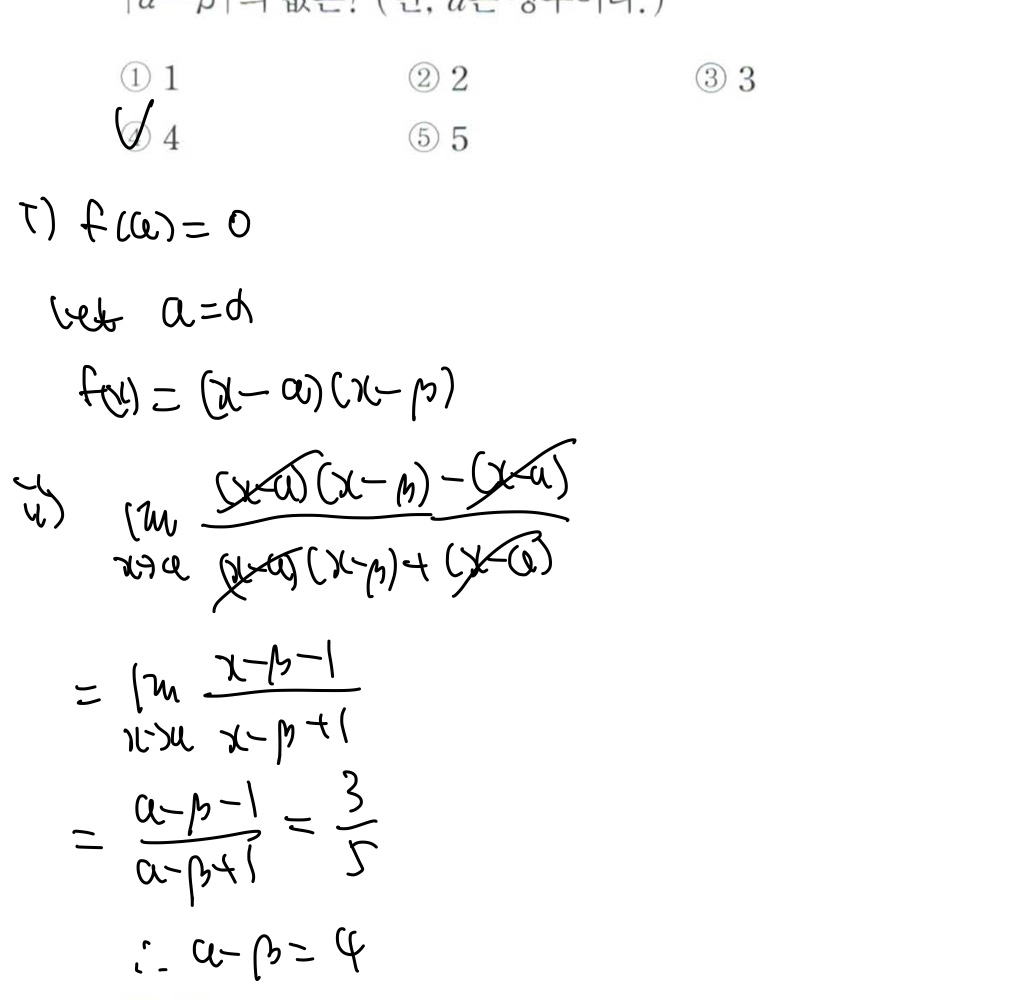 |α - β|의 값은? (단, a는 상수이다.)
① 1 ② 2 ③ 3
④ 4 ⑤ 5
i) f(a) = 0
let a = α
f(x) = (x - a)(x - β)
ii) lim x→a (x-a)(x-β) - (x-a) / (x-a)(x-β) + (x-a)
= lim x→a x-β-1 / x-β+1
= a-β-1 / a-β+1 = 3/5
∴ a-β = 4